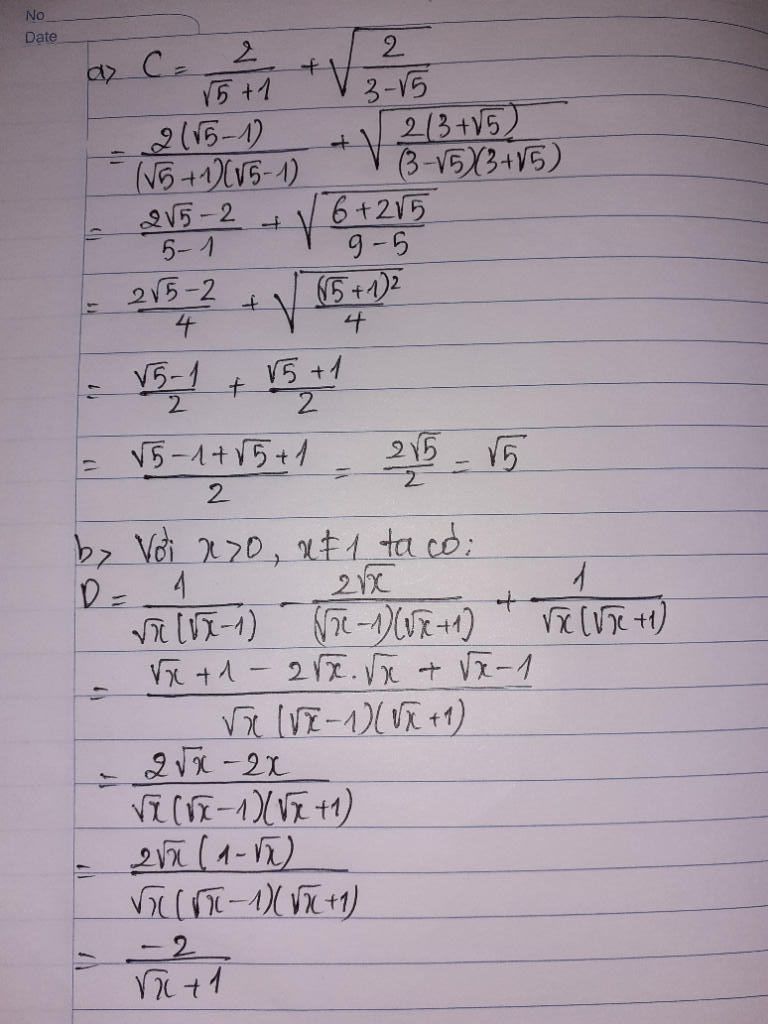 No
Date
a> C = 2/(√5+1) + √(2/(3-√5))
= 2(√5-1)/((√5+1)(√5-1)) + √(2(3+√5)/((3-√5)(3+√5)))
= (2√5-2)/(5-1) + √((6+2√5)/(9-5))
= (2√5-2)/4 + √((√5+1)²/4)
= (√5-1)/2 + (√5+1)/2
= (√5-1+√5+1)/2 = 2√5/2 = √5
b> Với x>0, x≠1 ta có:
D = 1/(√x(√x-1)) - 2√x/((√x-1)(√x+1)) + 1/(√x(√x+1))
= (√x+1-2√x.√x+√x-1)/(√x(√x-1)(√x+1))
= (2√x-2x)/(√x(√x-1)(√x+1))
= 2√x(1-√x)/(√x(√x-1)(√x+1))
= -2/(√x+1)